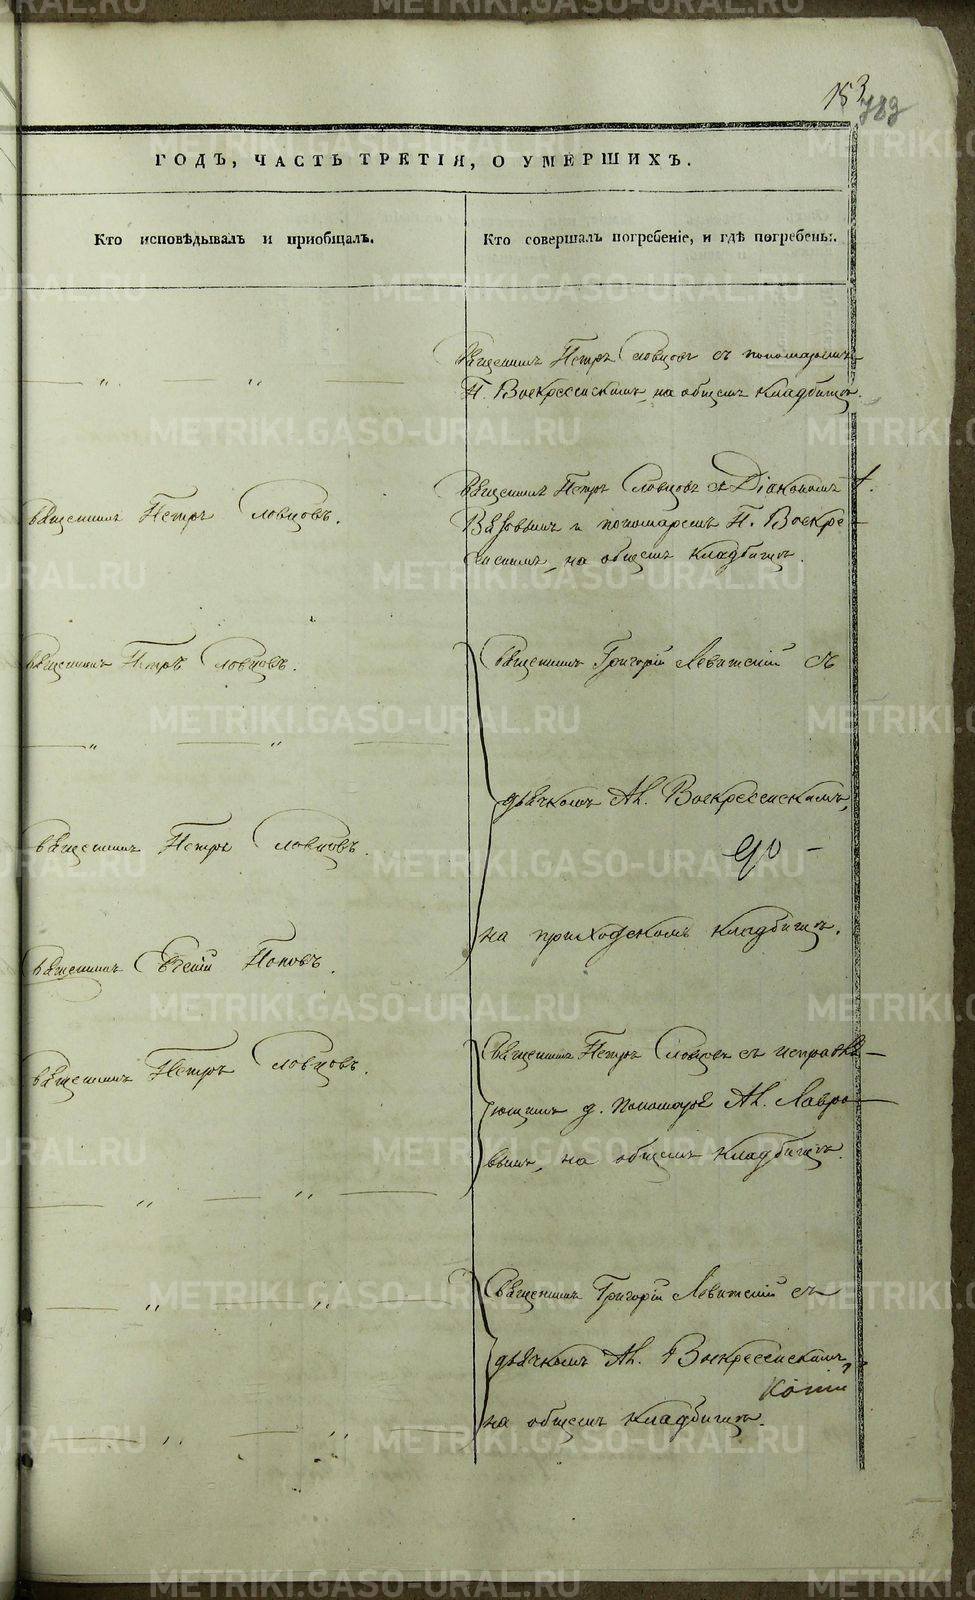 153
783
ГОДЪ, ЧАСТЬ ТРЕТІЯ, О УМЕРШИХЪ.
Кто исповѣдывалъ и пріобщалъ.
Кто совершалъ погребеніе, и гдѣ погребены.
Священникъ Петръ Словцовъ съ пономаремъ
П. Воскресенскимъ, на общемъ кладбищѣ.
Священникъ Петръ Словцовъ.
Священникъ Петръ Словцовъ съ Діакономъ
и пономаремъ П. Воскре-
сенскимъ, на общемъ кладбищѣ.
Священникъ Петръ Словцовъ.
Священникъ Григорій Левитскій съ
дьячкомъ Ал. Воскресенскимъ,
Священникъ Петръ Словцовъ.
на приходскомъ кладбищѣ.
Священникъ Евгеній Поповъ.
Священникъ Петръ Словцовъ.
Священникъ Петръ Словцовъ съ исправля-
ющимъ д. пономаря Ал. Лавро-
вымъ, на общемъ кладбищѣ.
Священникъ Григорій Левитскій съ
дьячкомъ Ал. Воскресенскимъ,
на общемъ кладбищѣ.
METRIKI.GASO-URAL.RU